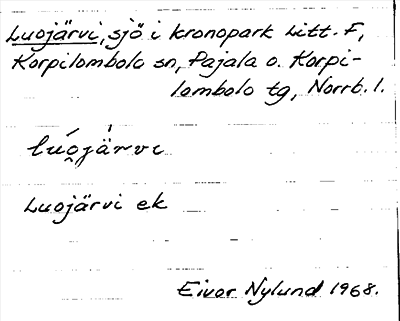 Luojärvi, sjö i kronopark Litt. F,
Korpilombolo sn, Pajala o. Korpi-
lombolo tg, Norrb. l.
lúo̯jàrvi
Luojärvi ek
Eivor Nylund 1968.